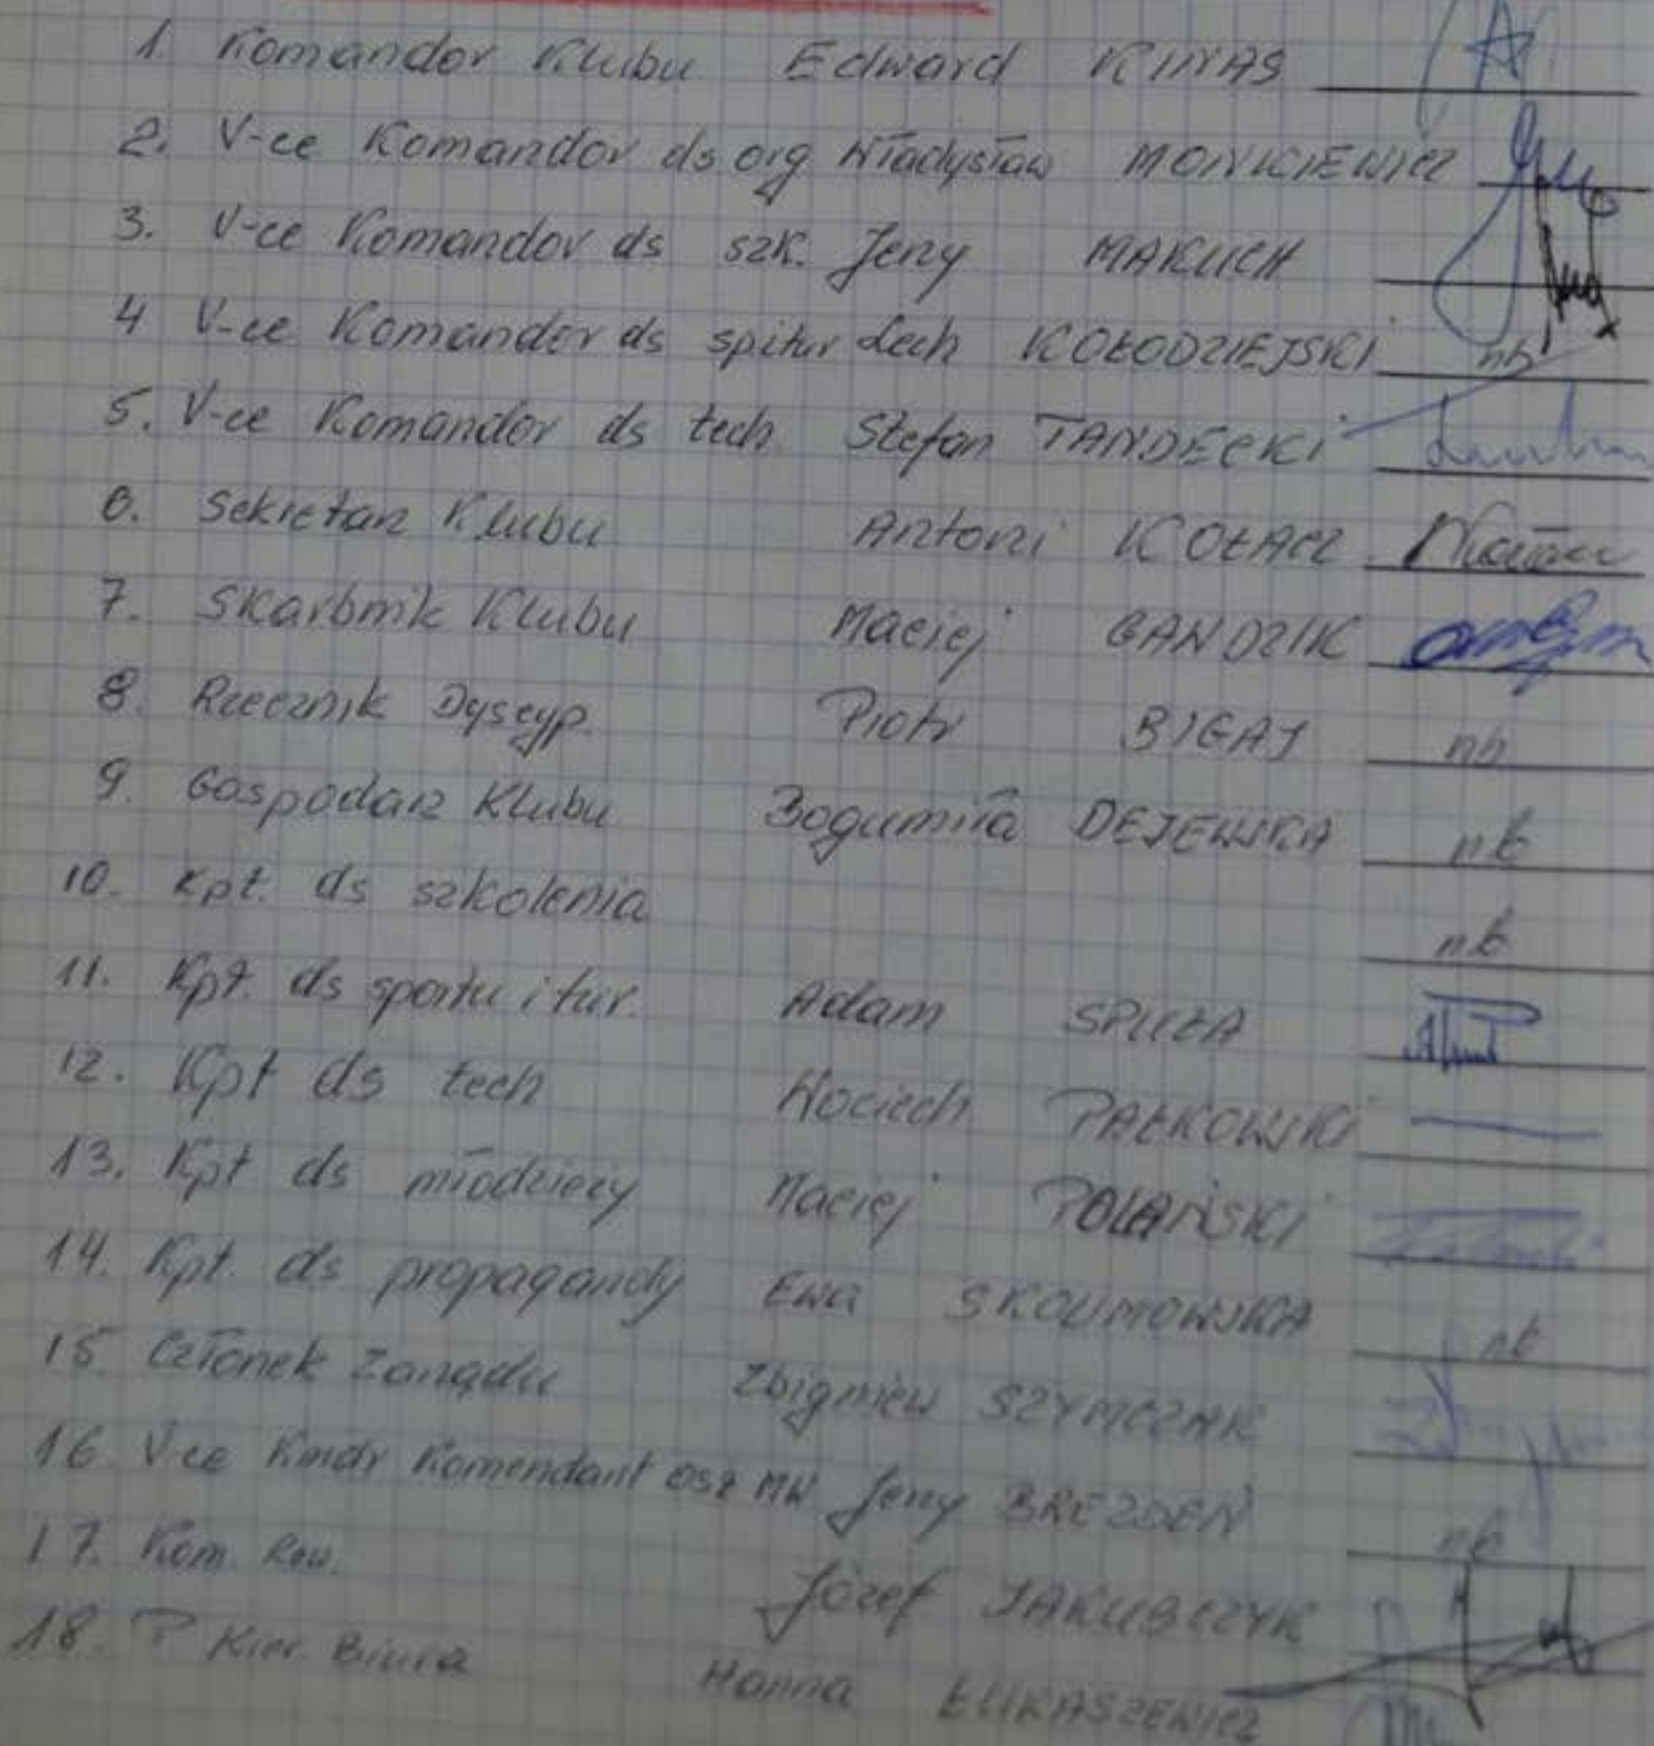 1. Komandor Klubu Edward KINAS
2. V-ce Komandor ds org Władysław MONKIEWICZ
3. V-ce Komandor ds szk. Jerzy MAKUCH
4 V-ce Komandor ds spitur Lech KOŁODZIEJSKI nb
5. V-ce Komandor ds tech Stefan TANDECKI
6. Sekretarz Klubu Antoni KOŁACZ
7. Skarbnik Klubu Maciej GANDZIK
8. Rzecznik Dyscyp. Piotr BIGAJ nb
9. Gospodarz Klubu Bogumiła DEJEWSKA nb
10. Kpt. ds szkolenia nb
11. Kpt. ds sportu i tur. Adam SPUŁA
12. Kpt ds tech Wociech PAŁKOWSKI
13. Kpt ds młodzieży Maciej POLAŃSKI
14. Kpt. ds propagandy Ewa SKOLIMOWSKA nb
15 Członek Zarządu Zbigniew SZYMCZAK
16 V-ce Kmdr Komendant OSŻ MW Jerzy BREZDEŃ nb
17. Kom. Rew. Józef JAKUBCZYK
18. P Kier. Biura Hanna ŁUKASZEWICZ